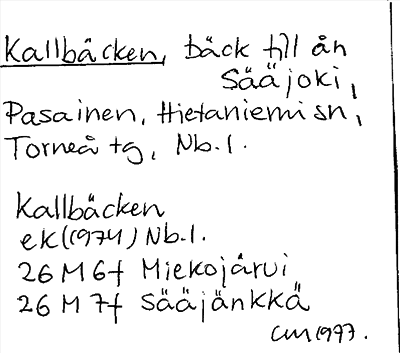 Kallbäcken, bäck till ån
Sääjoki,
Pasainen, Hietaniemi sn,
Torneå tg, Nb.l.
Kallbäcken
ek (1974) Nb.l.
26 M 6f Miekojärvi
26 M 7f Sääjänkkä
CM 1997.